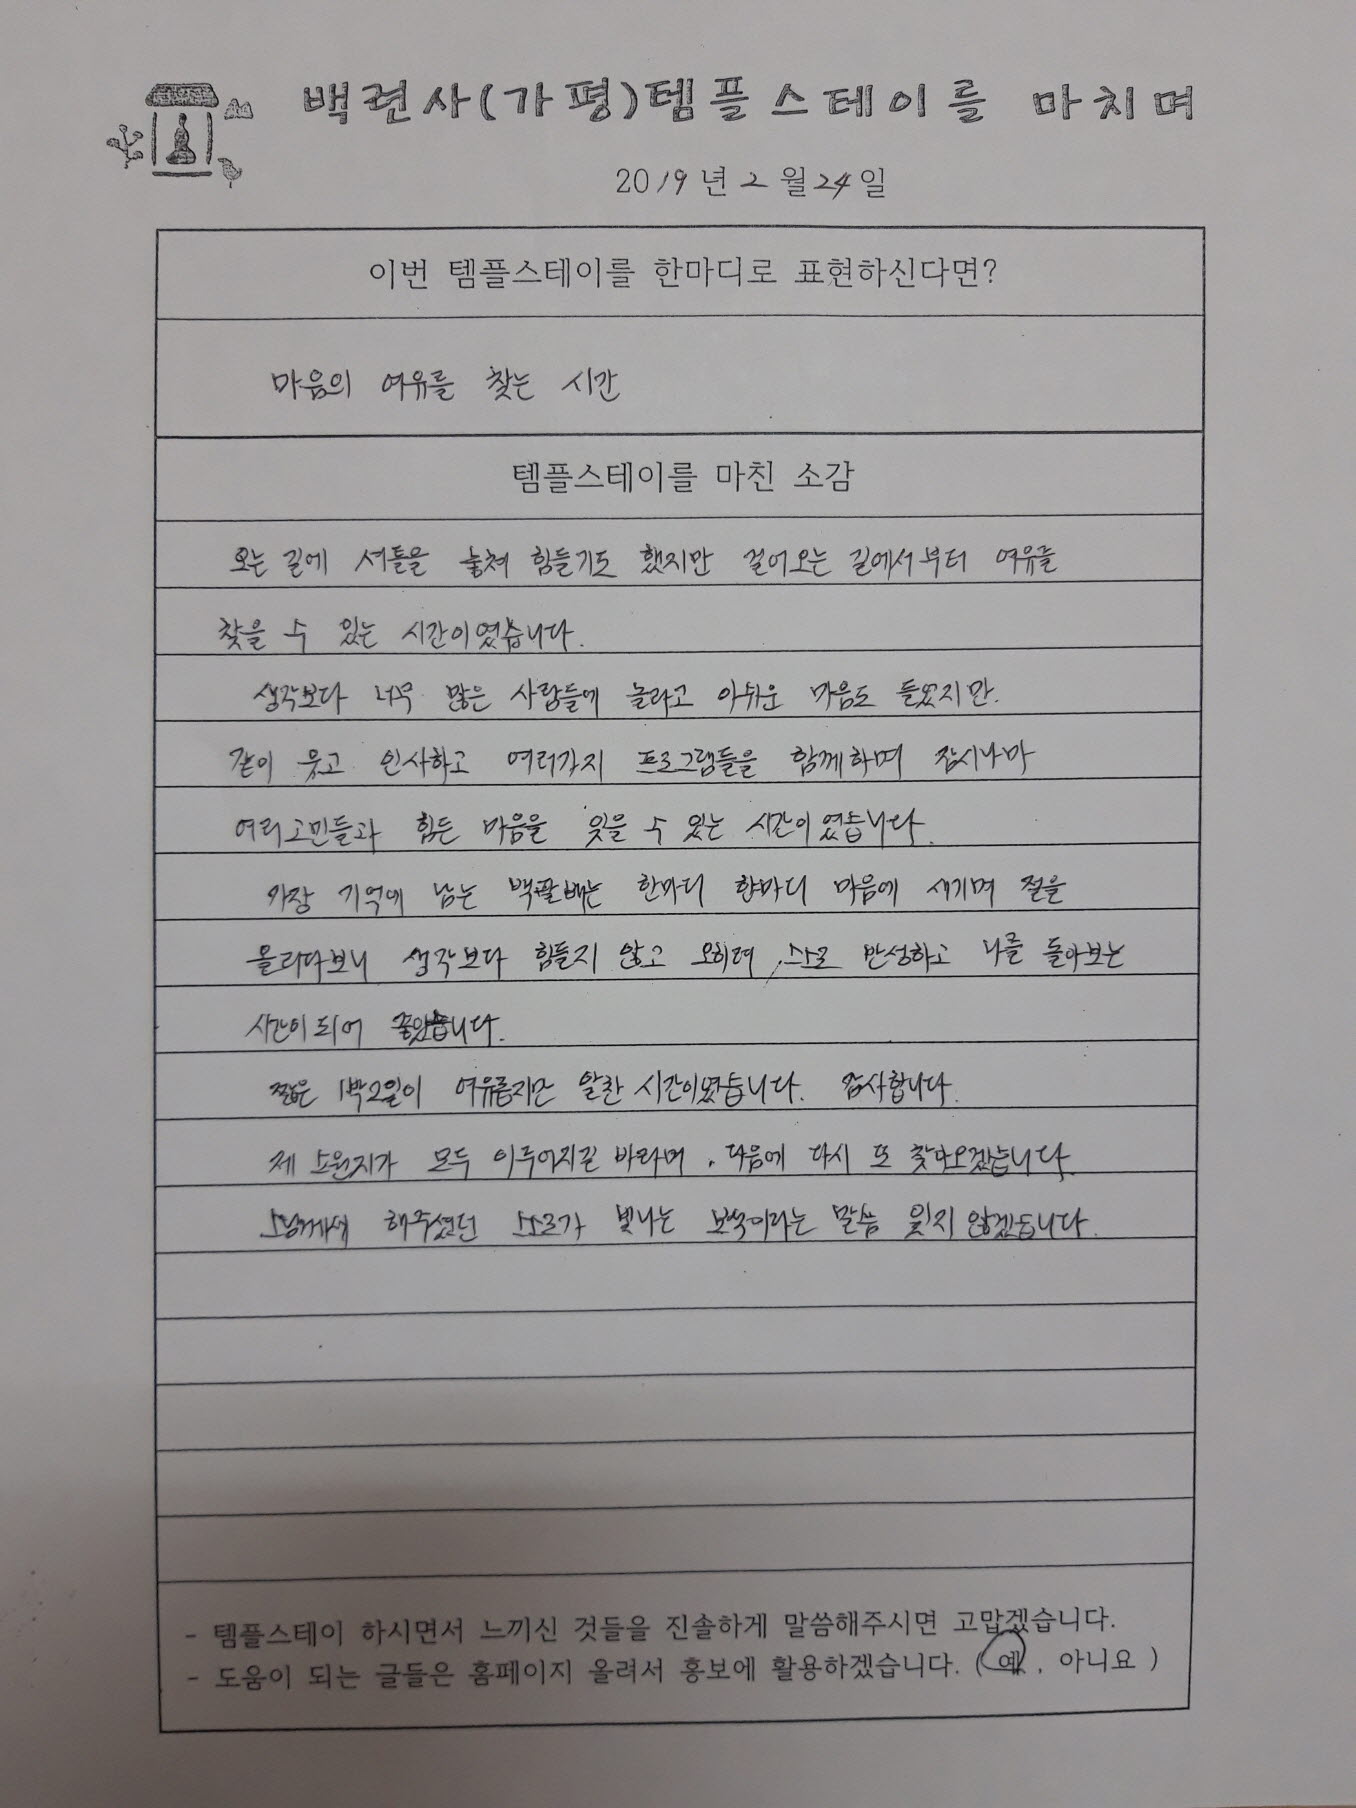 백련사(가평)템플스테이를 마치며
2019년 2월 24일
이번 템플스테이를 한마디로 표현하신다면?
마음의 여유를 찾는 시간
템플스테이를 마친 소감
오는 길에 셔틀을 놓쳐 힘들기도 했지만 걸어오는 길에서부터 여유를
찾을 수 있는 시간이였습니다.
생각보다 너무 많은 사람들에 놀라고 아쉬운 마음도 들었지만.
같이 웃고 인사하고 여러가지 프로그램들을 함께하며 잠시나마
여러고민들과 힘든 마음을 잊을 수 있는 시간이였습니다.
가장 기억에 남는 백팔배는 한마디 한마디 마음에 새기며 절을
올리다보니 생각보다 힘들지 않고 오히려 스스로 반성하고 나를 돌아보는
시간이 되어 좋았습니다.
짧은 1박2일이 여유롭지만 알찬 시간이였습니다. 감사합니다.
제 소원지가 모두 이루어지길 바라며, 다음에 다시 또 찾아오겠습니다.
스님께서 해주셨던 스스로가 빛나는 보석이라는 말씀 잊지 않겠습니다.
- 템플스테이 하시면서 느끼신 것들을 진솔하게 말씀해주시면 고맙겠습니다.
- 도움이 되는 글들은 홈페이지 올려서 홍보에 활용하겠습니다. ( 예 , 아니요 )